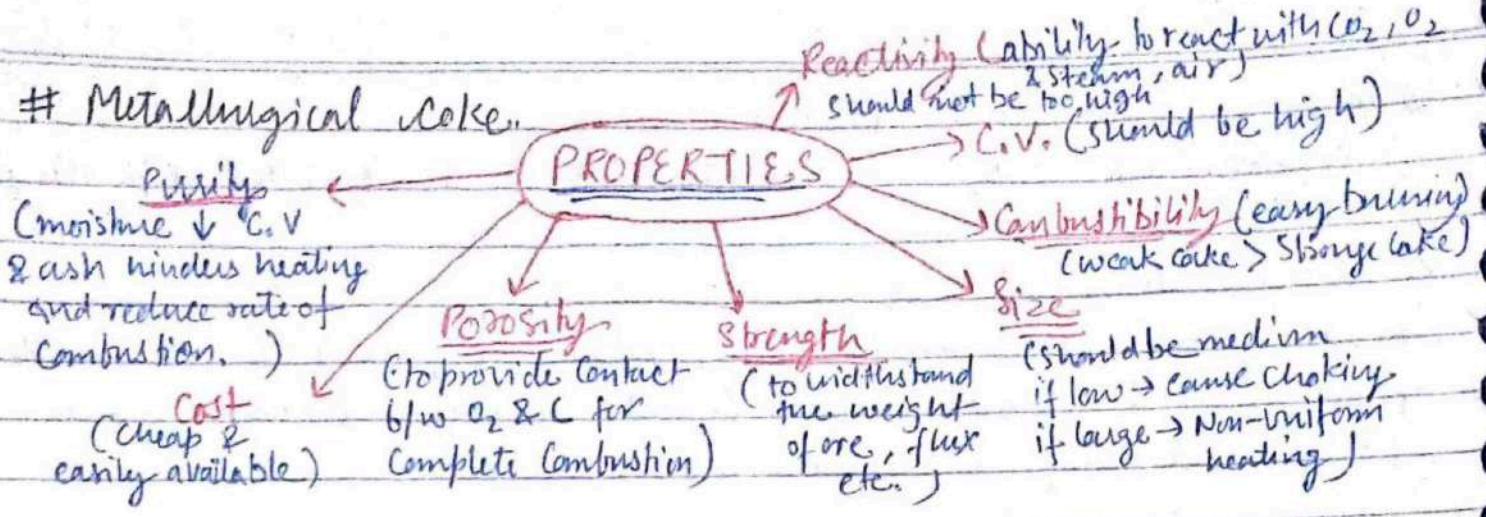 # Metallurgical Coke.
PROPERTIES
Reactivity (ability to react with CO2, O2
& steam, air)
should not be too high
C.V. (should be high)
Combustibility (easy burning)
(weak coke > Strong Coke)
Size
(should be medium
if low → cause Choking
if large → Non-Uniform
heating)
Strength
(to widthstand
the weight
of ore, flux
etc.)
Porosity
(to provide Contact
b/w O2 & C for
Complete Combustion)
Cost
(Cheap &
easily available)
Purity
(moisture ↓ C.V
& ash hinders heating
and reduce rate of
Combustion. )